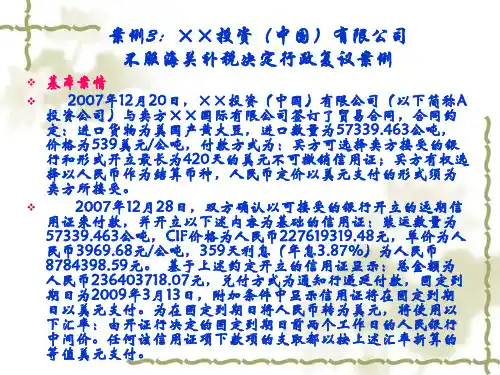 案例3：××投资（中国）有限公司
不服海关补税决定行政复议案例
基本案情
2007年12月20日，××投资（中国）有限公司（以下简称A
投资公司）与卖方××国际有限公司签订了贸易合同，合同约
定：进口货物为美国产黄大豆，进口数量为57339.463公吨，
价格为539美元/公吨，付款方式为：买方可选择卖方接受的银
行和形式开立最长为420天的美元不可撤销信用证；买方有权选
择以人民币作为结算币种，人民币定价以美元支付的形式须为
卖方所接受。
2007年12月28日，双方确认以可接受的银行开立的远期信
用证来付款，并开立以下述内容为基础的信用证：装运数量为
57339.463公吨，CIF价格为人民币227619319.48元，单价为人
民币3969.68元/公吨，359天利息（年息3.87%）为人民币
8784398.59元。 基于上述约定开立的信用证显示：总金额为
人民币236403718.07元，兑付方式为通知行延迟付款， 固定到
期日为2009年3月13日，附加条件中显示信用证将在固定到期
日以美元支付。为在固定到期日将人民币转为美元，将使用以
下汇率：由开证行决定的固定到期日前两个工作日的人民银行
中间价。任何该信用证项下款项的支取都以按上述汇率折算的
等值美元支付。